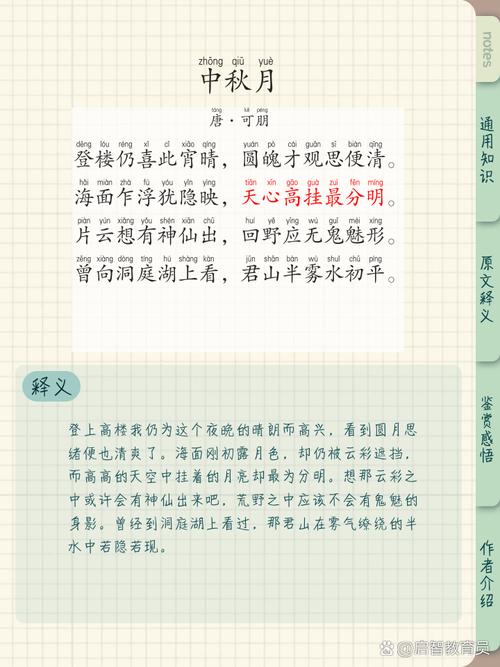 notes
zhōng qiū yuè
中秋月
táng kě péng
唐·可朋
dēng lóu réng xǐ cǐ xiāo qíng yuán pò cái guān sī biàn qīng
登楼仍喜此宵晴，圆魄才观思便清。
hǎi miàn zhà fú yóu yǐn yìng tiān xīn gāo guà zuì fēn míng
海面乍浮犹隐映，天心高挂最分明。
piàn yún xiǎng yǒu shén xiān chū huí yě yīng wú guǐ mèi xíng
片云想有神仙出，回野应无鬼魅形。
zēng xiàng dòng tíng hú shàng kàn jūn shān bàn wù shuǐ chū píng
曾向洞庭湖上看，君山半雾水初平。
释义
登上高楼我仍为这个夜晚的晴朗而高兴，看到圆月思
绪便也清爽了。海面刚初露月色，却仍被云彩遮挡，
而高高的天空中挂着的月亮却最为分明。想那云彩之
中或许会有神仙出来吧，荒野之中应该不会有鬼魅的
身影。曾经到洞庭湖上看过，那君山在雾气缭绕的半
水中若隐若现。
通用知识
原文释义
鉴赏感悟
作者介绍
@启智教育员